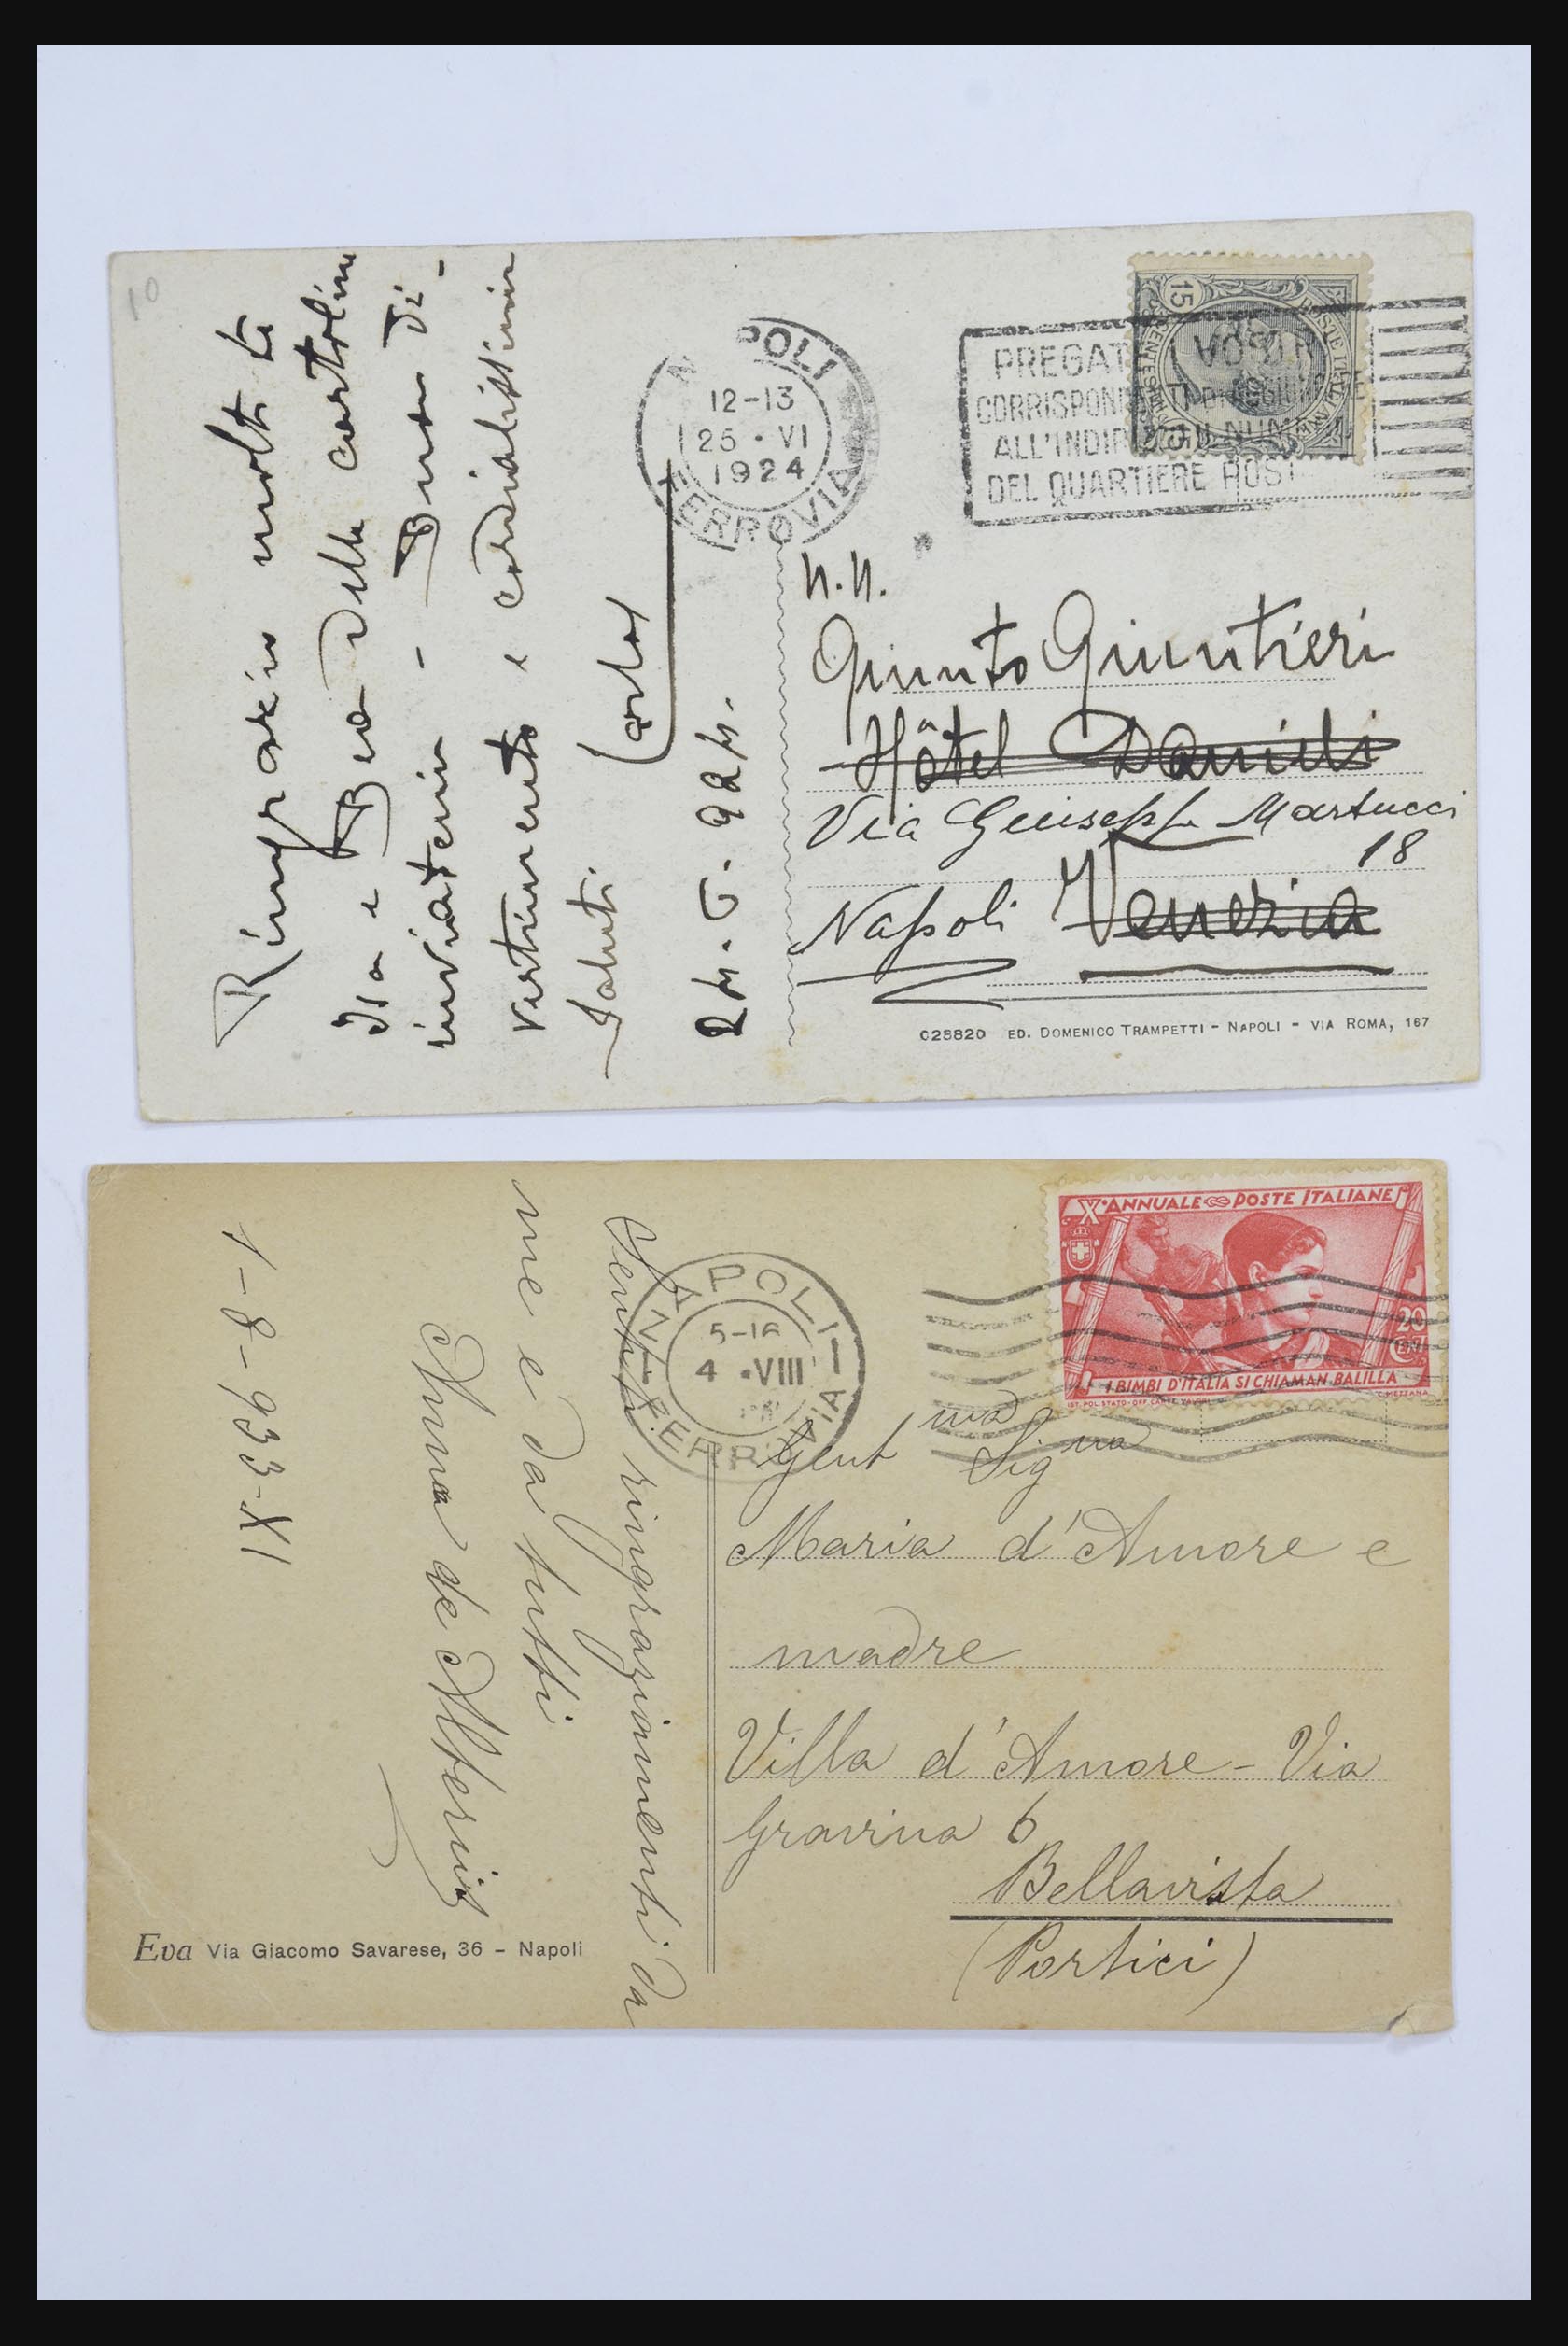 10
Ringrazio molto te
Isa e Bea delle cartoline
inviatemi - Buon di-
vertimento e cordialissimi
Saluti
Carlo
24.6.924.
NAPOLI
12-13
25 · VI
1924
FERROVIA
PREGAT I VOSTR
CORRISPOND TI DI AGGIUNGE E
ALL'INDIR ZZO IL NUME
DEL QUARTIERE POST
15
POSTE ITALIANE
CENTESIMI
15
N.N.
Giunto Giuntieri
Hôtel Danieli
Via Giuseppe Martucci
18
Napoli Venezia
028820 ED. DOMENICO TRAMPETTI - NAPOLI - VIA ROMA, 167
X° ANNUALE POSTE ITALIANE
20
CENT
I BIMBI D'ITALIA SI CHIAMAN BALILLA
IST. POL. STATO-OFF. CARTE VALORI
C. MEZZANA
NAPOLI
5-16
4 · VIII
FERROVIA
Sentiti ringraziamenti da
me e da tutti
Anna de
1-8-933-XI
Gent ma Sig na
Maria d'Amore e
madre
Villa d'Amore - Via
Gravina 6
Bellavista
(Portici)
Eva Via Giacomo Savarese, 36 - Napoli